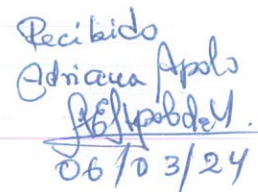 Recibido
Adriana Apolo
06/03/24